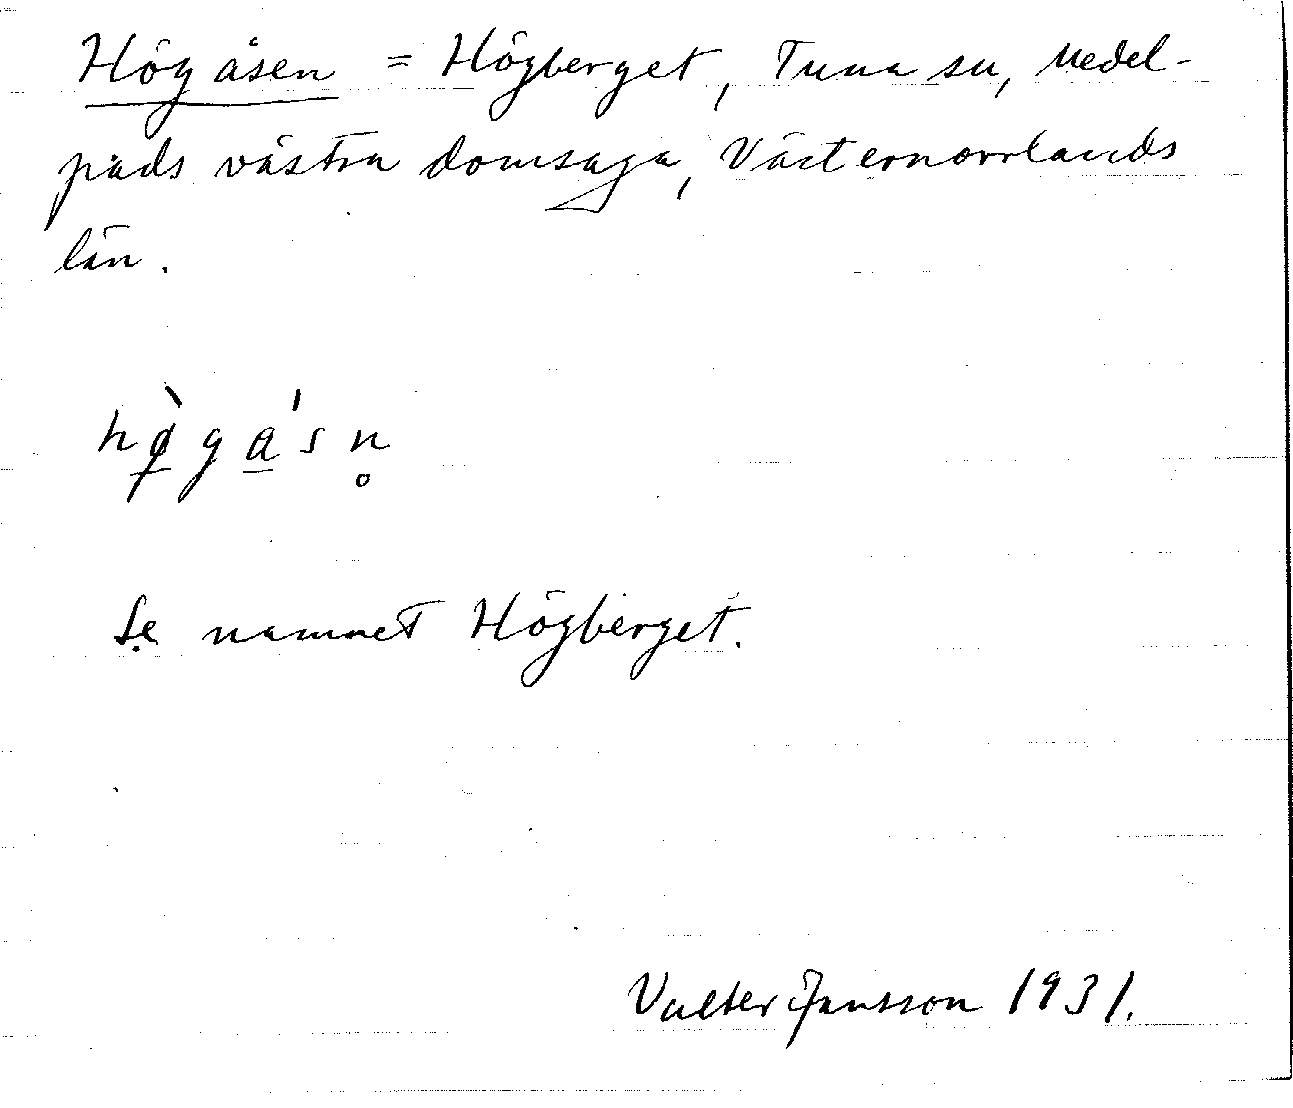 Högåsen = Högberget, Tuna sn, Medel-
pads västra domsaga, Västernorrlands
län.
hø̀ga̲'sn̥
Se namnet Högberget.
Valter Jansson 1931.